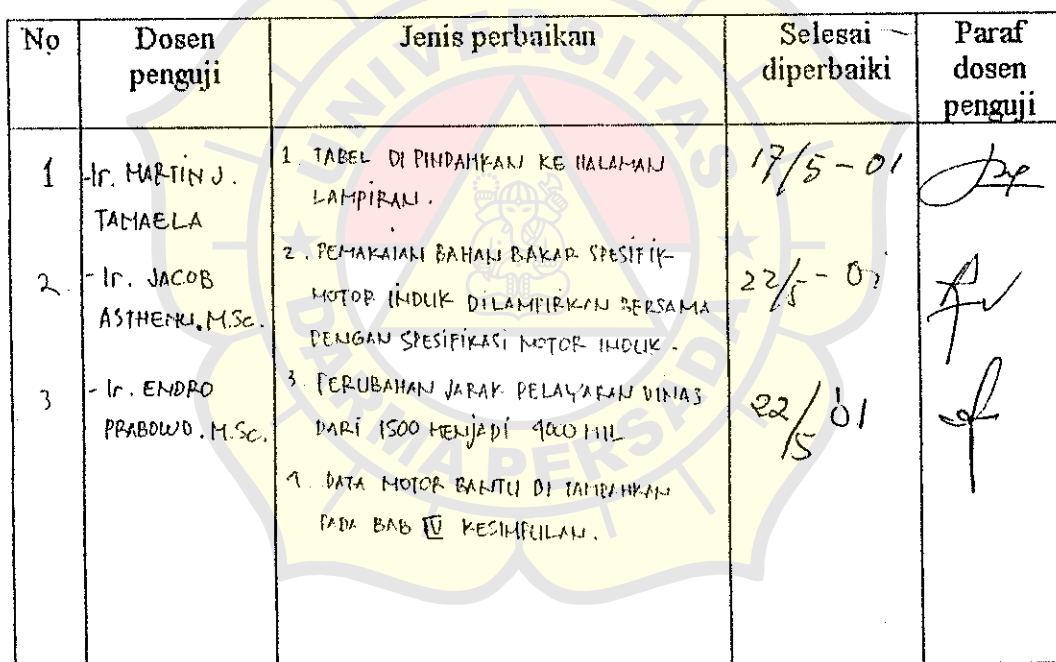 No Dosen penguji Jenis perbaikan Selesai diperbaiki Paraf dosen penguji
1 -Ir. MARTIN J. TAMAELA 1. TABEL DI PINDAHKAN KE HALAMAN 17/5 - 01
LAMPIRAN.
2. - Ir. JACOB ASTHENU. M.Sc. 2. PEMAKAIAN BAHAN BAKAR SPESIFIK 22/5 - 01
MOTOR INDUK DILAMPIRKAN BERSAMA
DENGAN SPESIFIKASI MOTOR INDUK.
3 - Ir. ENDRO PRABOWO. M.Sc. 3. PERUBAHAN JARAK PELAYARAN DINAS 22/5 '01
DARI 1500 MENJADI 4000 MIL
4. DATA MOTOR BANTU DI TAMBAHKAN
PADA BAB IV KESIMPULAN.
UNIVERSITAS
DARMA PERSADA